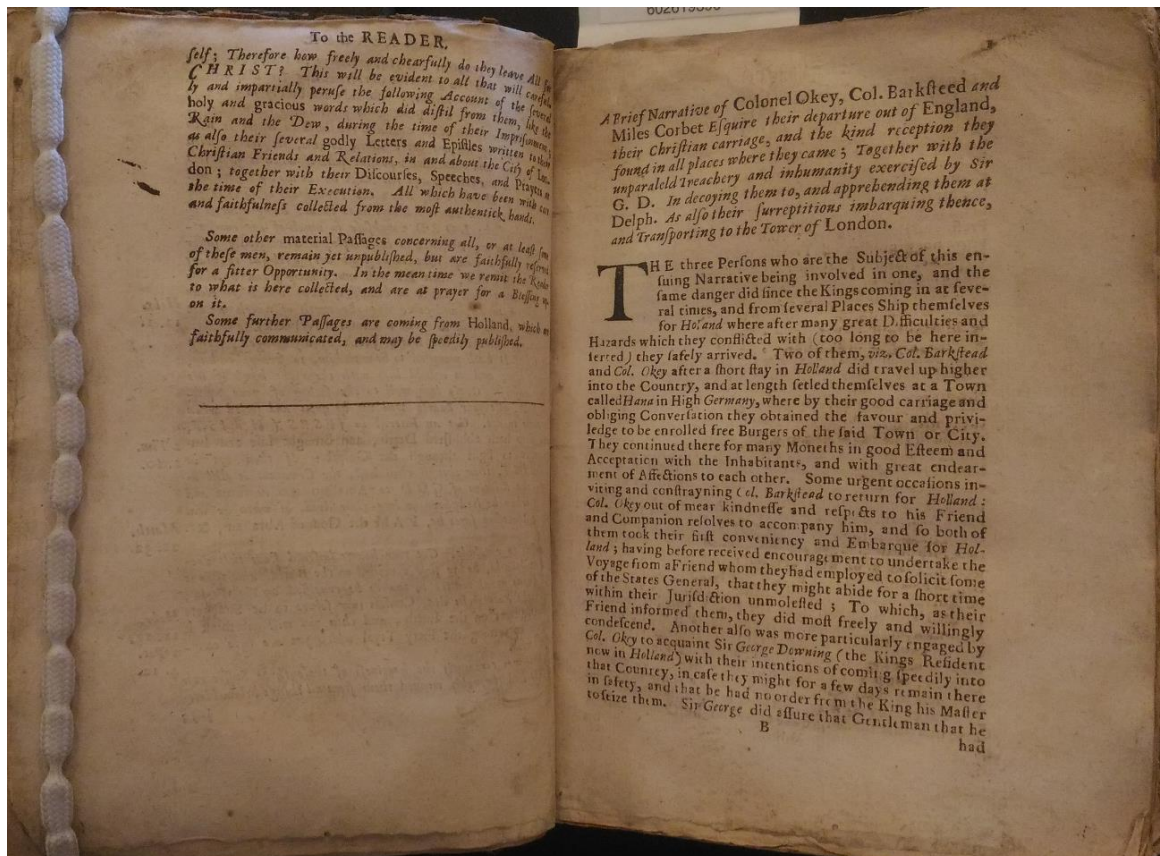 602619596
To the READER.
ſelf; Therefore how freely and chearfully do they leave All for
CHRIST? This will be evident to all that will careful-
ly and impartially peruſe the following Account of the ſeveral
holy and gracious words which did diſtil from them, like the
Rain and the Dew, during the time of their Impriſonment;
as alſo their ſeveral godly Letters and Epiſtles written to their
Chriſtian Friends and Relations, in and about the City of Lon-
don; together with their Diſcourſes, Speeches, and Prayers at
the time of their Execution. All which have been with care
and faithfulneſs collected from the moſt authentick hands.
Some other material Paſſages concerning all, or at leaſt ſom
of theſe men, remain yet unpubliſhed, but are faithfully reſerved
for a fitter Opportunity. In the mean time we remit the Reader
to what is here collected, and are at prayer for a Bleſſing up-
on it.
Some further Paſſages are coming from Holland, which
faithfully communicated, and may be ſpeedily publiſhed.
A Brief Narrative of Colonel Okey, Col. Barkſteed and
Miles Corbet Eſquire their departure out of England,
their Chriſtian carriage, and the kind reception they
found in all places where they came; Together with the
unparaleld Treachery and inhumanity exerciſed by Sir
G. D. In decoying them to, and apprehending them at
Delph. As alſo their ſurreptitious imbarquing thence,
and Tranſporting to the Tower of London.
THE three Perſons who are the Subject of this en-
ſuing Narrative being involved in one, and the
ſame danger did ſince the Kings coming in at ſeve-
ral times, and from ſeveral Places Ship themſelves
for Holand where after many great Difficulties and
Hazards which they conflicted with (too long to be here in-
ſerted) they ſafely arrived. Two of them, viz. Col. Barkſtead
and Col. Okey after a ſhort ſtay in Holland did travel up higher
into the Country, and at length ſetled themſelves at a Town
called Hana in High Germany, where by their good carriage and
obliging Converſation they obtained the favour and privi-
ledge to be enrolled free Burgers of the ſaid Town or City.
They continued there for many Moneths in good Eſteem and
Acceptation with the Inhabitants, and with great endear-
ment of Affections to each other. Some urgent occaſions in-
viting and conſtrayning Col. Barkſtead to return for Holland:
Col. Okey out of mear kindneſſe and reſpects to his Friend
and Companion reſolves to accompany him, and ſo both of
them took their firſt conveniency and Embarque for Hol-
land; having before received encouragement to undertake the
Voyage from a Friend whom they had employed to ſolicit ſome
of the States General, that they might abide for a ſhort time
within their Juriſdiction unmoleſted; To which, as their
Friend informed them, they did moſt freely and willingly
condeſcend. Another alſo was more particularly engaged by
Col. Okey to acquaint Sir George Downing (the Kings Reſident
now in Holland) with their intentions of coming ſpeedily into
that Country, in caſe they might for a few days remain there
in ſafety, and that he had no order from the King his Maſter
to ſeize them. Sir George did aſſure that Gentleman that he
B
had